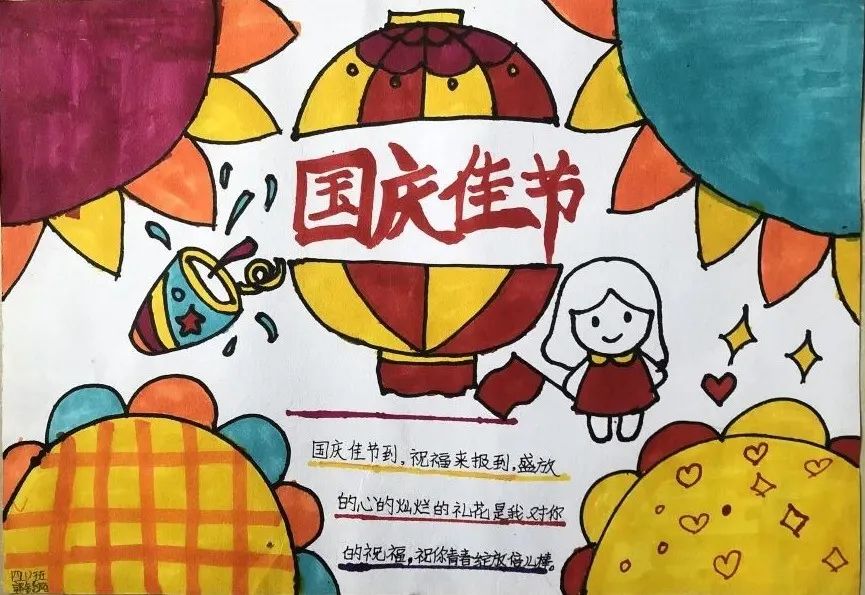 国庆佳节
国庆佳节到，祝福来报到，盛放
的心的灿烂的礼花是我对你
的祝福，祝你青春绽放倍儿棒。